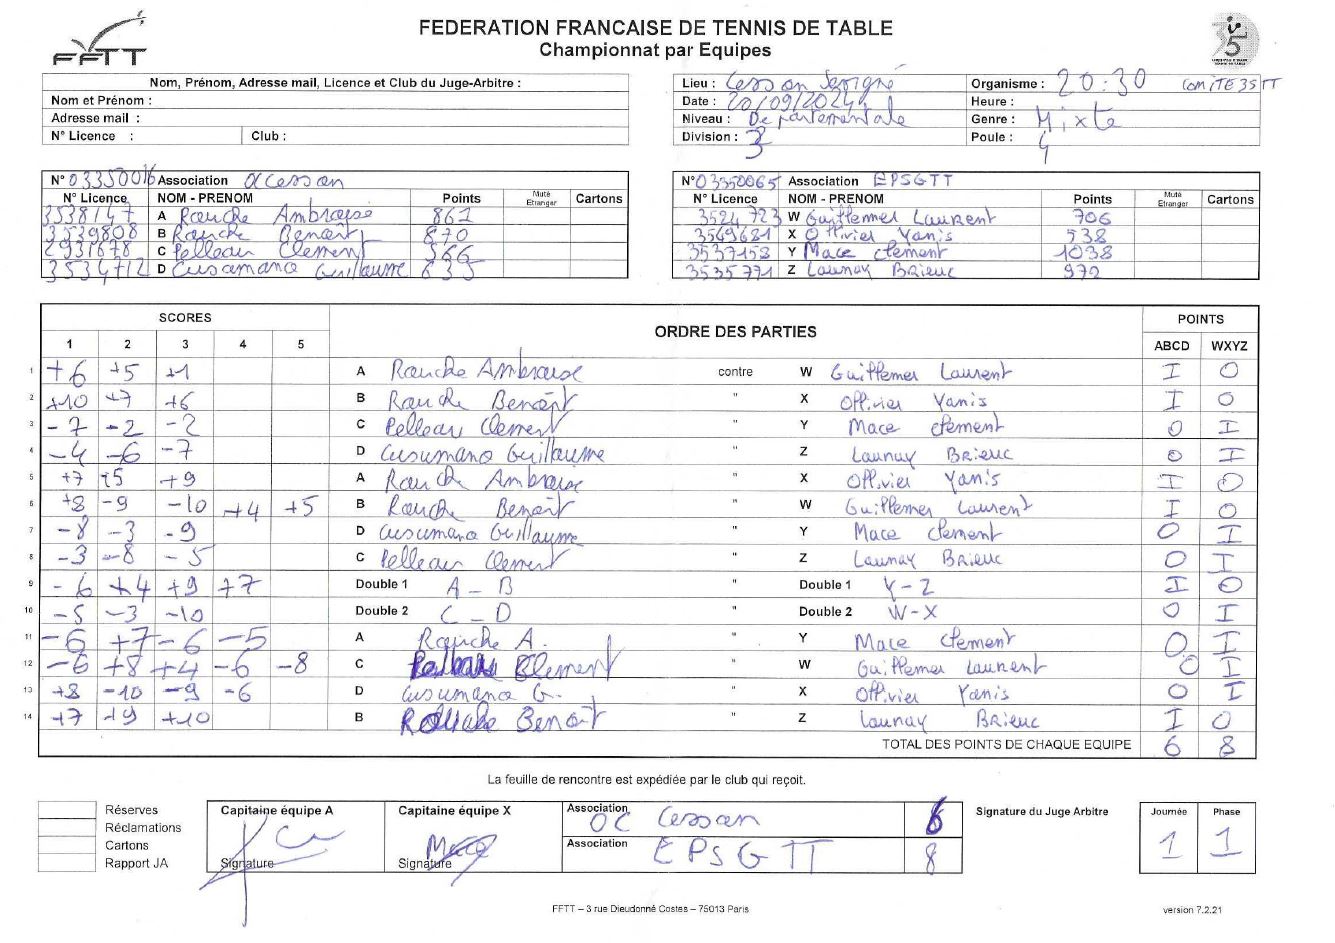 FFTT
FEDERATION FRANCAISE DE TENNIS DE TABLE
Championnat par Equipes
Nom, Prénom, Adresse mail, Licence et Club du Juge-Arbitre :
Nom et Prénom :
Adresse mail :
N° Licence : Club :
Lieu : Cesson Sévigné Organisme : 20:30 COMITE35TT
Date : 20/09/2024 Heure :
Niveau : Départementale Genre : Mixte
Division : 3 Poule : 4
N° 03350016 Association OCCesson
N° Licence NOM - PRENOM Points Muté Etranger Cartons
3538147 A Rouche Ambroise 861
3539808 B Rouche Benoît 870
2931678 C Pelleau Clement 566
3534712 D Cusumano Guillaume 635
N° 03350065 Association EPSGTT
N° Licence NOM - PRENOM Points Muté Etranger Cartons
3524723 W Guillemer Laurent 706
3549681 X Ollivier Yanis 538
3537153 Y Mace clement 1038
3535771 Z Launay Brieuc 972
SCORES ORDRE DES PARTIES POINTS
1 2 3 4 5 ABCD WXYZ
1 +6 +5 +1 A Rouche Ambroise contre W Guillemer Laurent I 0
2 +10 +7 +6 B Rouche Benoît " X Ollivier Yanis I 0
3 -7 -2 -2 C Pelleau Clement " Y Mace clement 0 I
4 -4 -6 -7 D Cusumano Guillaume " Z Launay Brieuc 0 I
5 +7 +5 +9 A Rouche Ambroise " X Ollivier Yanis I 0
6 +8 -9 -10 +4 +5 B Rouche Benoît " W Guillemer Laurent I 0
7 -8 -3 -9 D Cusumano Guillaume " Y Mace clement 0 I
8 -3 -8 -5 C Pelleau Clement " Z Launay Brieuc 0 I
9 -6 +4 +9 +7 Double 1 A - B " Double 1 Y-Z I 0
10 -5 -3 -10 Double 2 C - D " Double 2 W-X 0 I
11 -6 +7 -6 -5 A Rouche A. " Y Mace clement 0 I
12 -6 +8 +4 -6 -8 C Clement " W Guillemer Laurent 0 I
13 +8 -10 -9 -6 D Cusumano G. " X Ollivier Yanis 0 I
14 +7 +9 +10 B Rouche Benoît " Z Launay Brieuc I 0
TOTAL DES POINTS DE CHAQUE EQUIPE 6 8
La feuille de rencontre est expédiée par le club qui reçoit.
Réserves
Réclamations
Cartons
Rapport JA
Capitaine équipe A
Signature
Capitaine équipe X
Mace
Signature
Association OC Cesson 6
Association EPSGTT 8
Signature du Juge Arbitre
Journée Phase
1 1
FFTT – 3 rue Dieudonné Costes – 75013 Paris
version 7.2.21